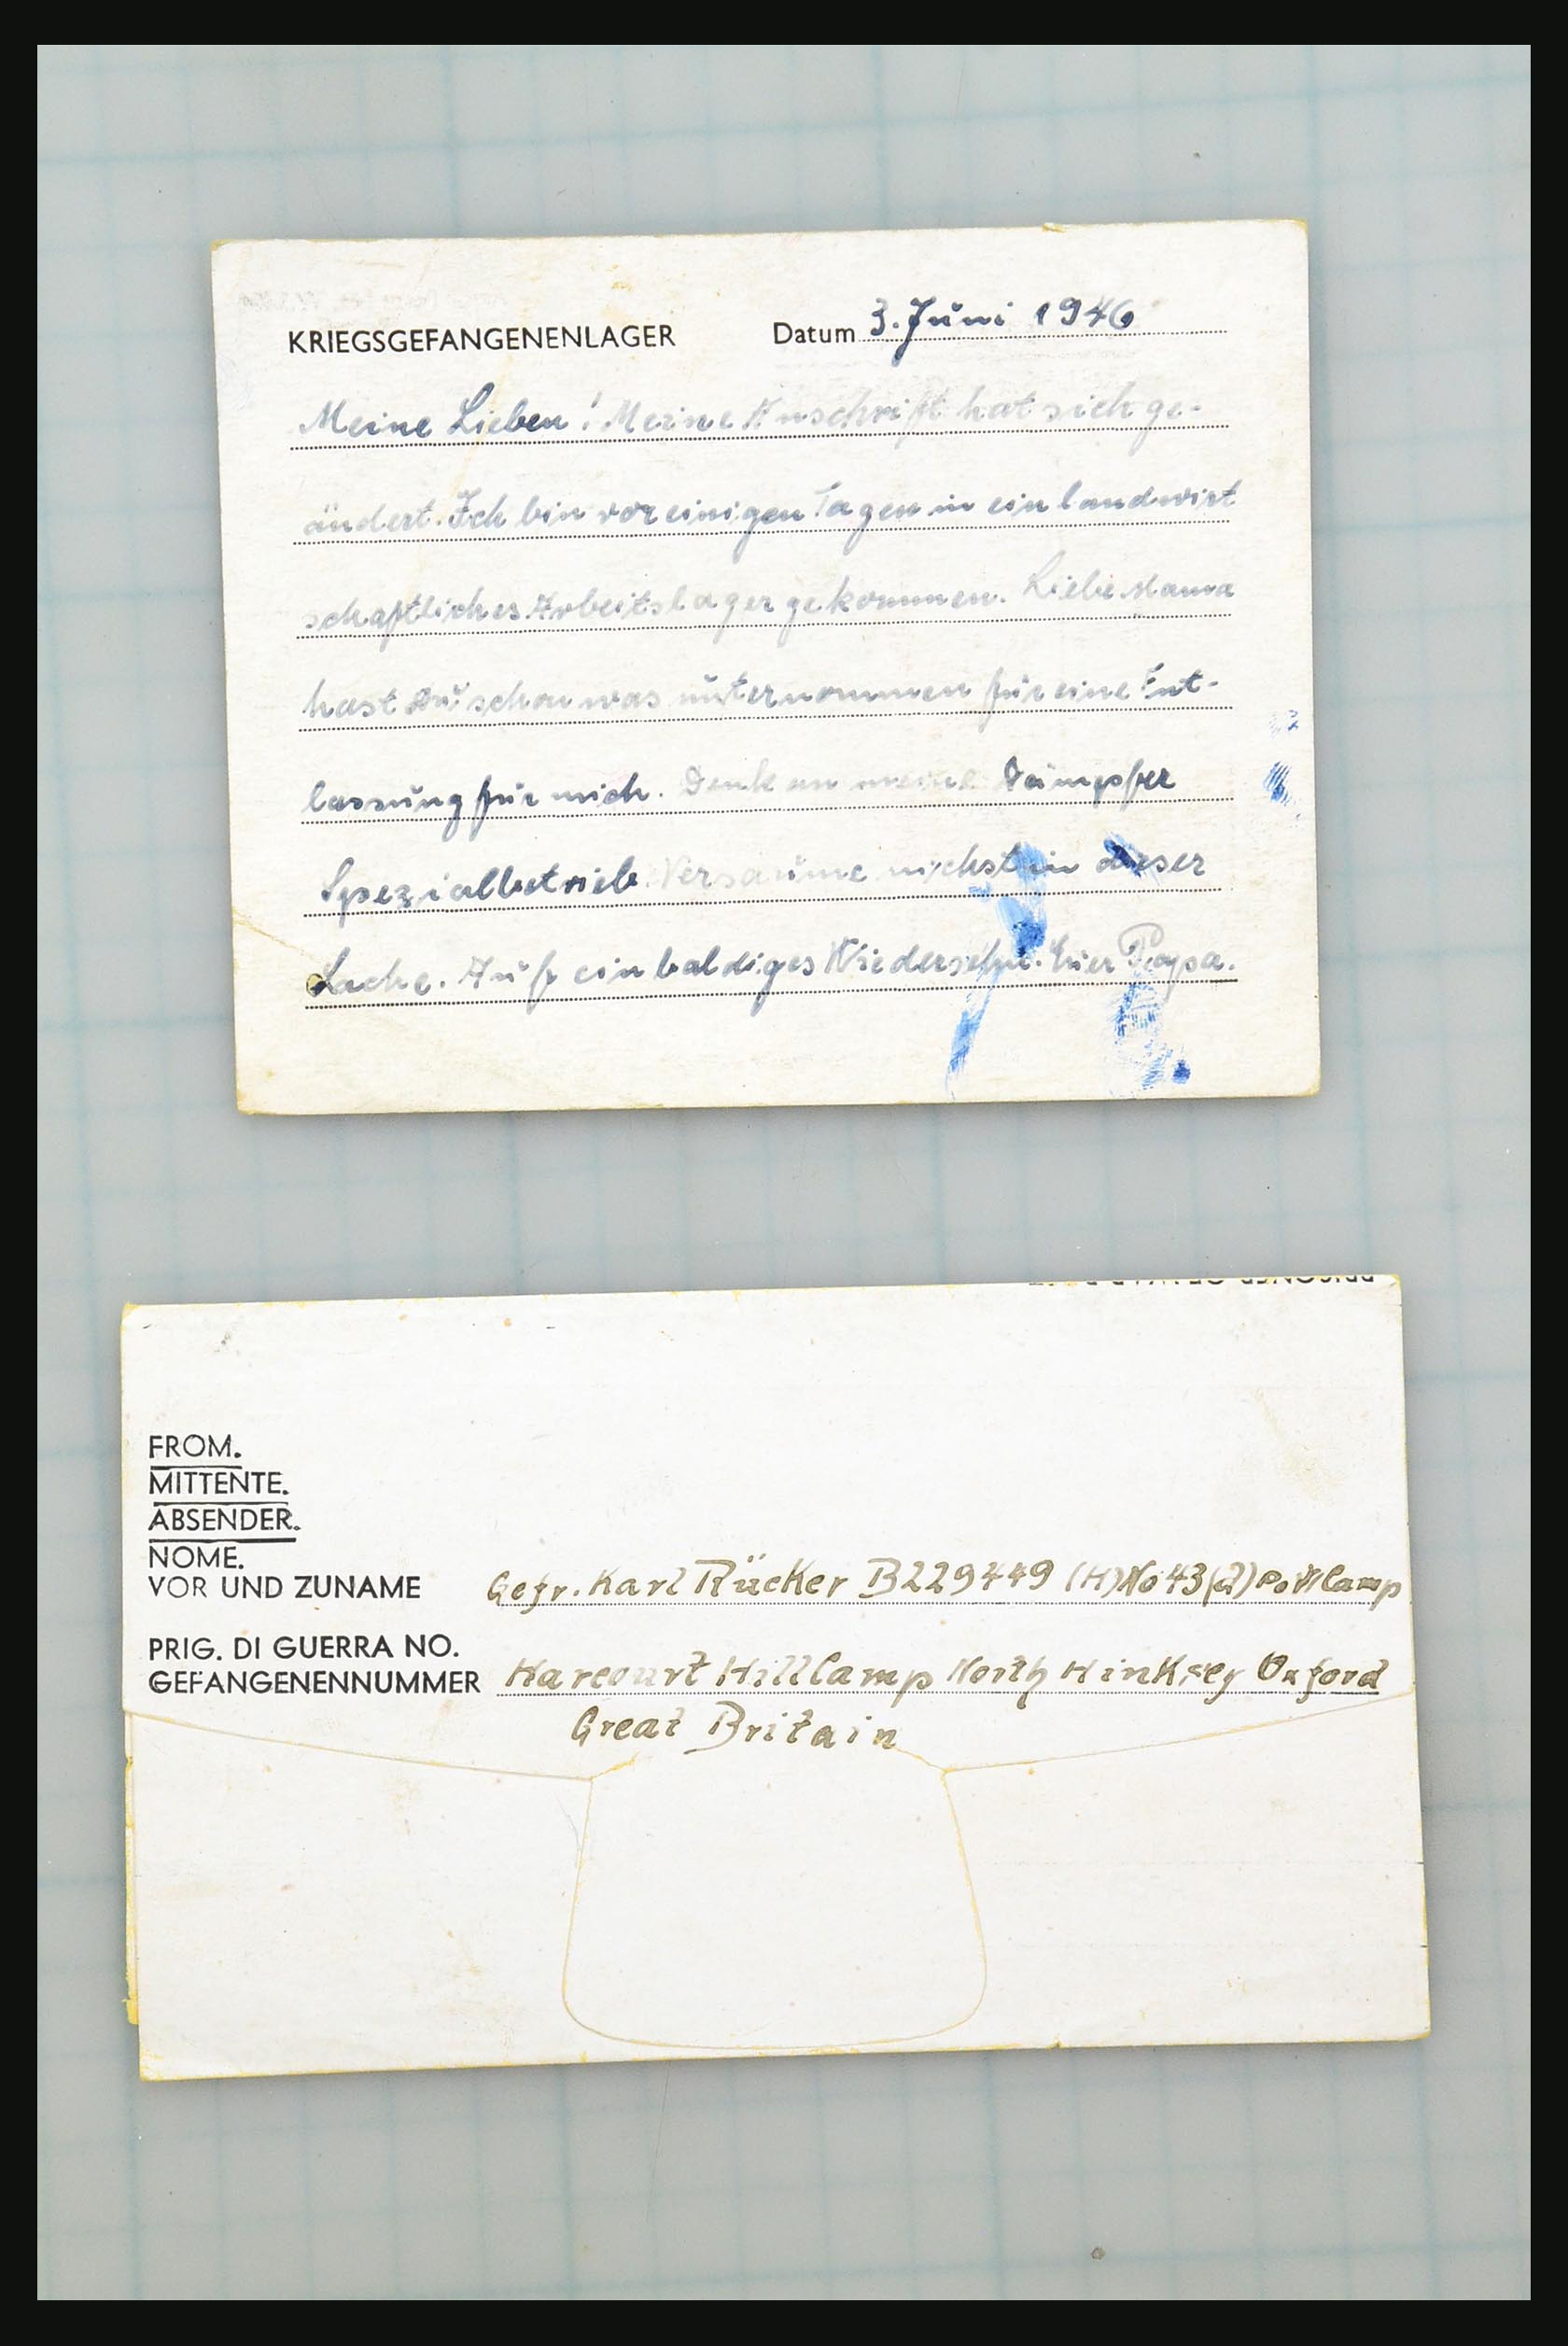 KRIEGSGEFANGENENLAGER Datum 3. Juni 1946
Meine Lieben! Meine Anschrift hat sich ge-
ändert. Ich bin vor einigen Tagen in ein landwirt
schaftliches Arbeitslager gekommen. Liebe Mama
hast Du schon was unternommen für eine Ent-
lassung für mich. Denk an meine Dämpfer
Spezialbetrieb. Versäume nichst in dieser
Sache. Auf ein baldiges Wiedersehn. Euer Papa.
PRISONER OF WAR
FROM.
MITTENTE.
ABSENDER.
NOME.
VOR UND ZUNAME Gefr. Karl Rücker B229449 (H) No 43(a) PoW Camp
PRIG. DI GUERRA NO.
GEFANGENENNUMMER Harcourt Hill Camp North Hinksey Oxford
Great Britain